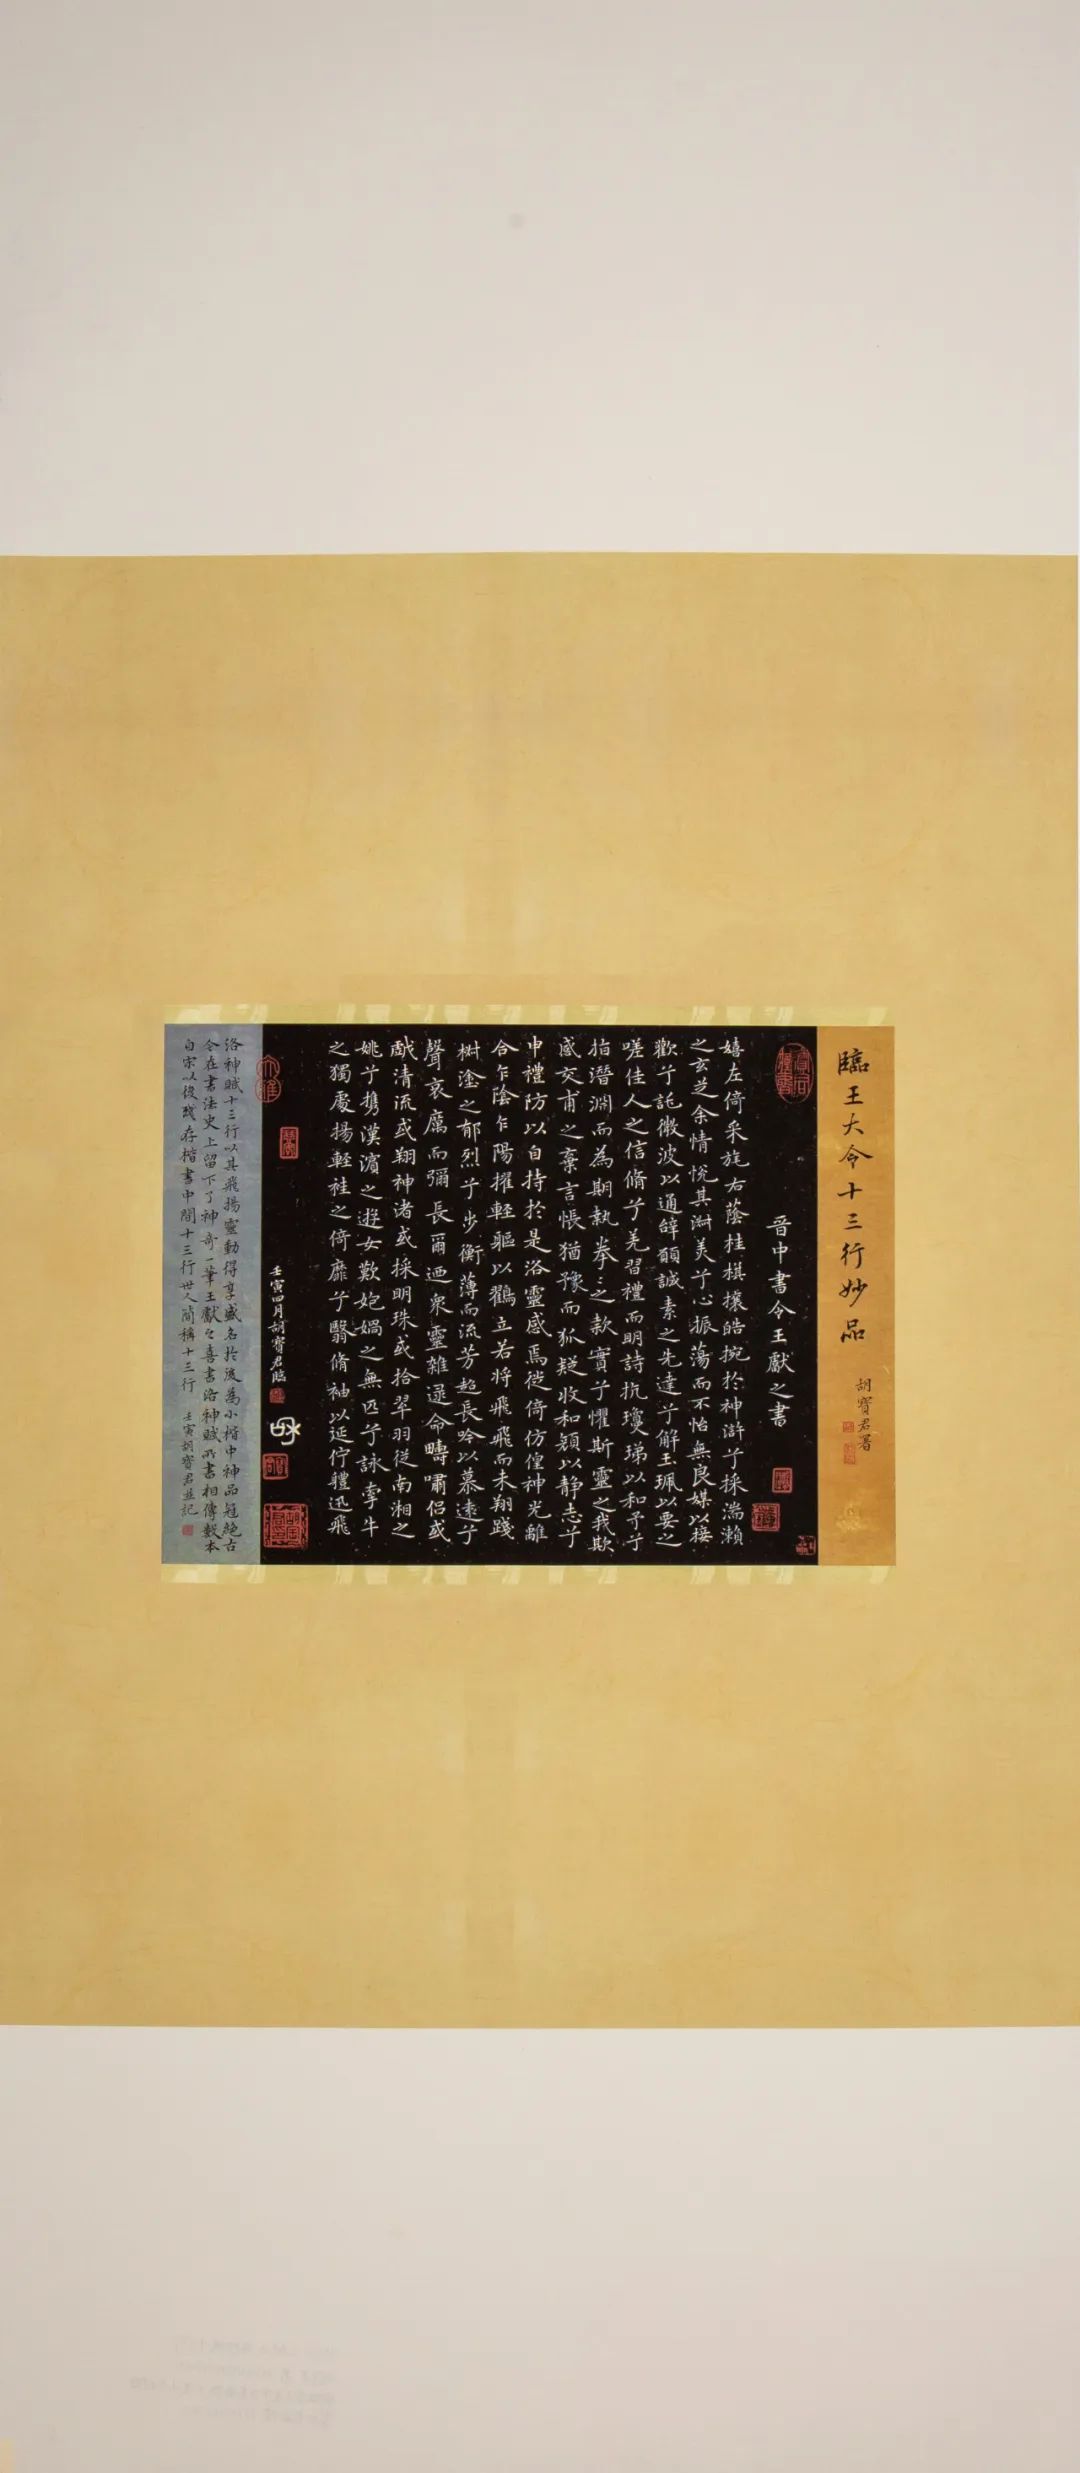 臨王大令十三行妙品
胡寶君署
晉中書令王獻之書
嬉左倚采旄右蔭桂棋攘皓捥於神滸兮採湍瀨
之玄芝余情悅其淑美兮心振蕩而不怡無良媒以接
歡兮託微波以通辭願誠素之先達兮解玉珮以要之
嗟佳人之信脩兮羌習禮而明詩抗瓊珶以和予兮
指潛淵而為期執拳之款實兮懼斯靈之我欺
感交甫之棄言悵猶豫而狐疑收和顏以靜志兮
申禮防以自持於是洛靈感焉徙倚仿偟神光離
合乍陰乍陽擢輕軀以鶴立若將飛飛而未翔踐
樹塗之郁烈兮步衡薄而流芳超長吟以慕遠兮
聲哀厲而彌長爾迺衆靈雜遝命疇嘯侶或
戲清流或翔神渚或採明珠或拾翠羽從南湘之
姚兮攜漢濱之遊女歎匏媧之無匹兮詠牽牛
之獨處揚輕袿之倚靡兮翳脩袖以延佇軆迅飛
壬寅四月胡寶君臨
洛神賦十三行以其飛揚靈動得享盛名於後為小楷中神品冠絕古
今在書法史上留下了神奇一筆王獻之喜書洛神賦所書相傳數本
自宋以後殘存楷書中間十三行世人簡稱十三行 壬寅胡寶君並記